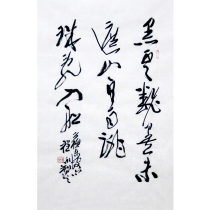 黑雲翻墨未
遮山白雨跳
珠亂入船